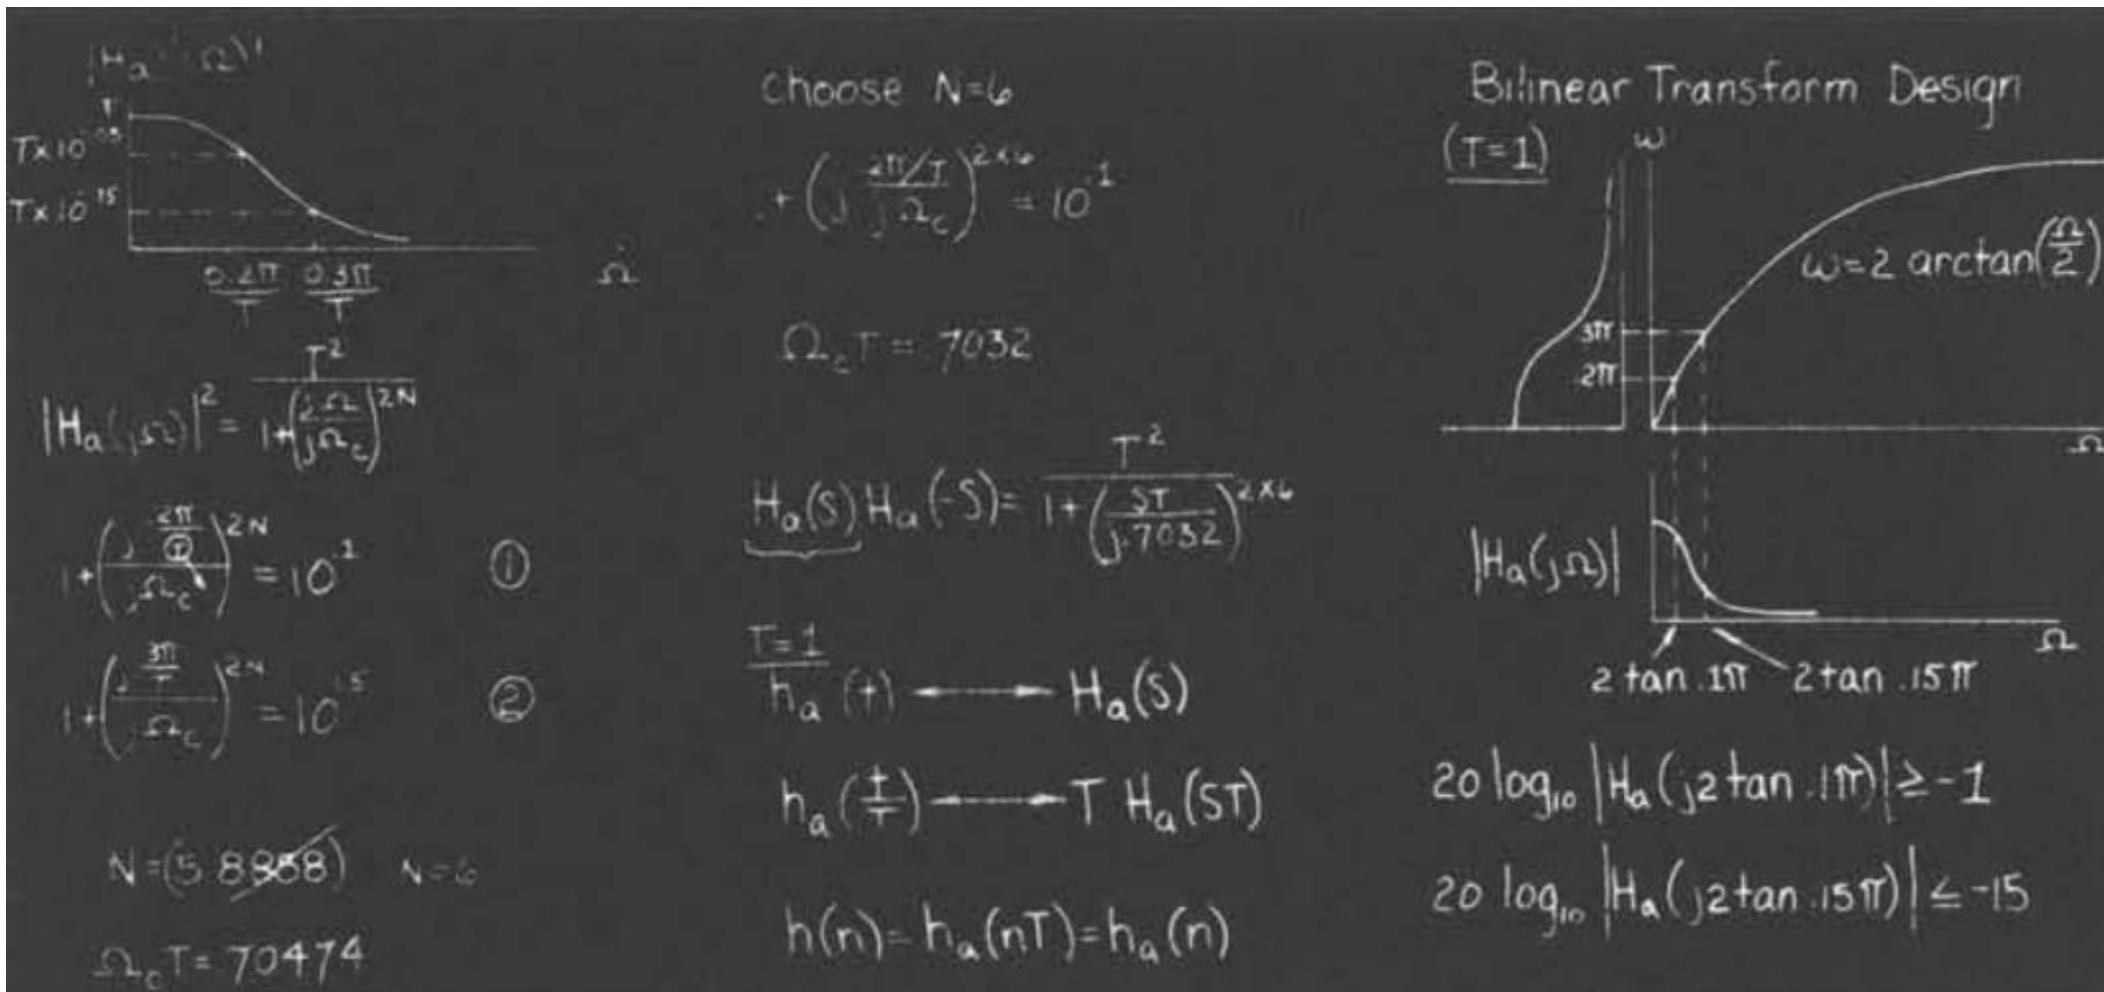 |Hₐ(jΩ)|
T
T×10^-.05
T×10^-.75
0.2π/T 0.3π/T
Ω
|Hₐ(jΩ)|² = T²/(1+(jΩ/jΩ_c)^2N)
1+(j (.2π/T)/jΩ_c)^2N = 10^.1 ①
1+(j (.3π/T)/jΩ_c)^2N = 10^1.5 ②
N=(5.8858) N=6
Ω_cT=.70474
choose N=6
1+(j (.2π/T)/jΩ_c)^2×6 = 10^.1
Ω_cT=.7032
Hₐ(s)Hₐ(-s)=T²/(1+(sT/j.7032)^2×6)
T=1
hₐ(t) ⟷ Hₐ(s)
hₐ(t/T) ⟷ T Hₐ(sT)
h(n)=hₐ(nT)=hₐ(n)
Bilinear Transform Design
(T=1)
ω
ω=2 arctan(Ω/2)
.3π
.2π
Ω
|Hₐ(jΩ)|
Ω
2 tan .1π 2 tan .15π
20 log₁₀ |Hₐ(j2 tan .1π)| ≥ -1
20 log₁₀ |Hₐ(j2 tan .15π)| ≤ -15